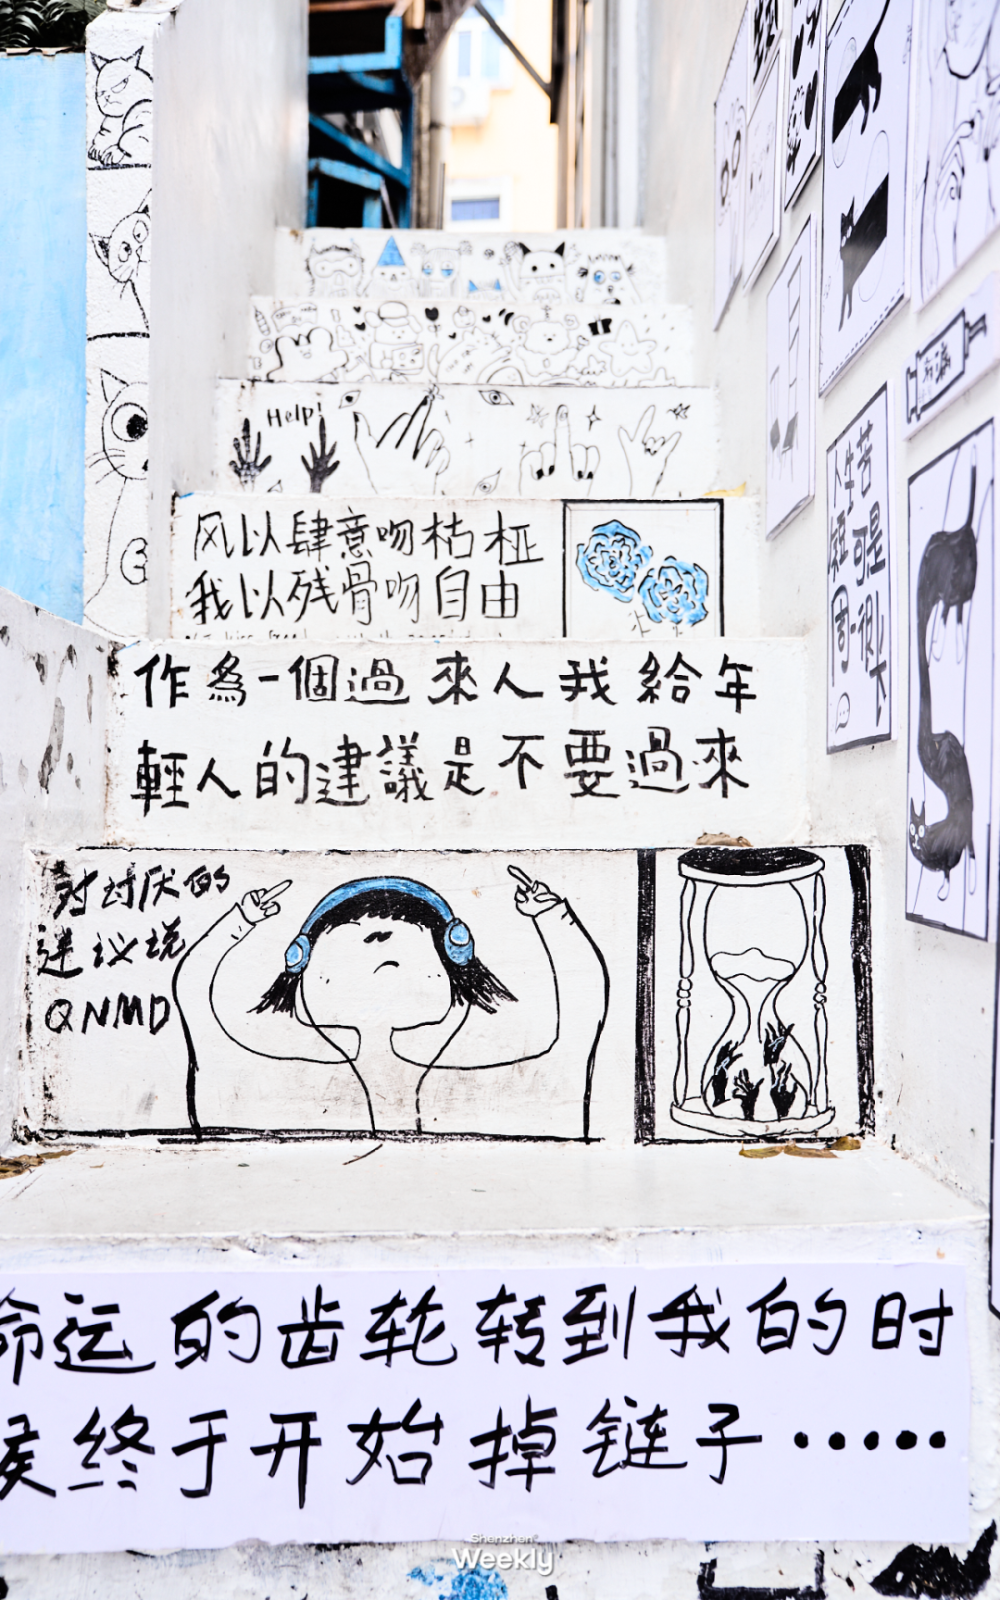 Help!
风以肆意吻枯桠
我以残骨吻自由
作為一個過來人我給年
輕人的建議是不要過來
对讨厌的
迷议说
QNMD
命运的齿轮转到我的时
候终于开始掉链子·····
人生苦
短可是
Shenzhen
Weekly